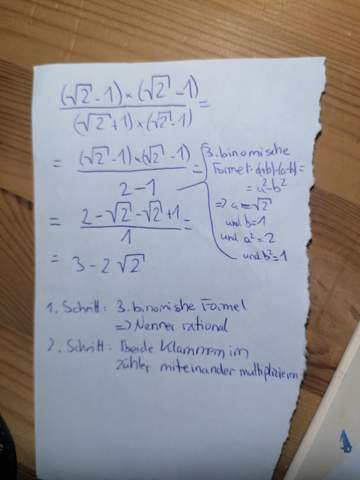 (√2 - 1) × (√2 - 1)
(√2 + 1) × (√2 - 1) =
= (√2 - 1) × (√2 - 1)
2 - 1 =
= 2 - √2 - √2 + 1
1 =
= 3 - 2 √2
3. binomische
Formel: (a+b)·(a-b) =
= a² - b²
=> a = √2
und b = 1
und a² = 2
und b² = 1
1. Schritt: 3. binomische Formel
=> Nenner rational
2. Schritt: Beide Klammern im
Zähler miteinander multiplizieren